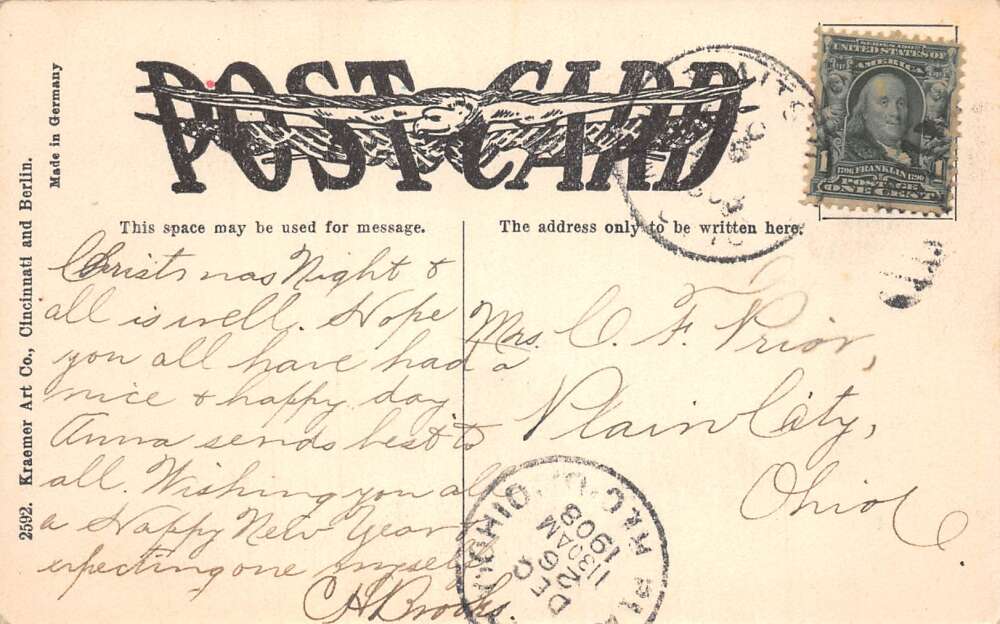 POST CARD
Made in Germany
2592. Kraemer Art Co., Cincinnati and Berlin.
This space may be used for message.
The address only to be written here.
SERIES 1902
UNITED STATES OF
AMERICA
1796 FRANKLIN 1790
POSTAGE
1 ONE CENT 1
Christmas Night &
all is well. Hope
you all have had a
nice & happy day
Anna sends best to
all. Wishing you all
a Happy New Year &
expecting one myself
C H Brooks.
Mrs. C. F. Prior,
Plain City,
Ohio
DEC
26
1130AM
1908
OHIO